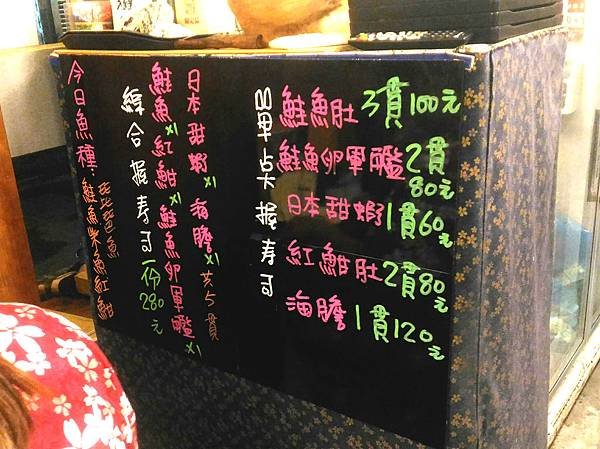 今日魚種:鮭魚柴魚紅魽
琵琶魚
綜合握寿司一份280元
鮭魚x1紅魽x1鮭魚卵軍艦x1
日本甜蝦x1海膽x1共5貫
單点握寿司
鮭魚肚3貫100元
鮭魚卵軍艦2貫80元
日本甜蝦1貫60元
紅魽肚2貫80元
海膽1貫120元